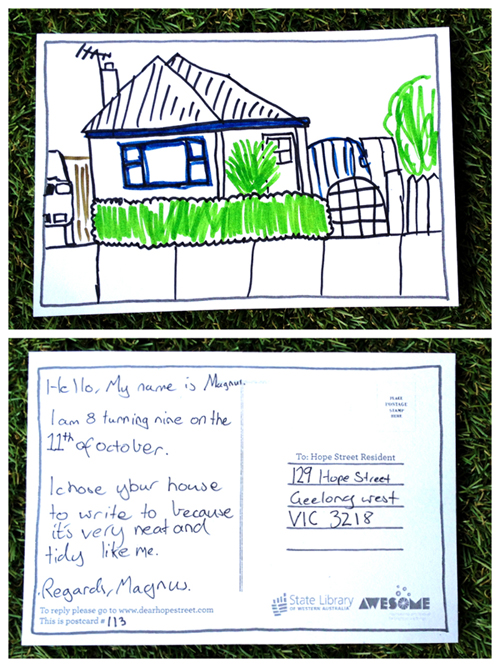 Hello, My name is Magnus.
I am 8 turning nine on the
11th of october.
I chose your house
to write to because
it's very neat and
tidy like me.
Regards, Magnus.
To reply please go to www.dearhopestreet.com
This is postcard # 113
PLACE
POSTAGE
STAMP
HERE
To: Hope Street Resident
129 Hope Street
Geelong west
VIC 3218
State Library
OF WESTERN AUSTRALIA
AWESOME